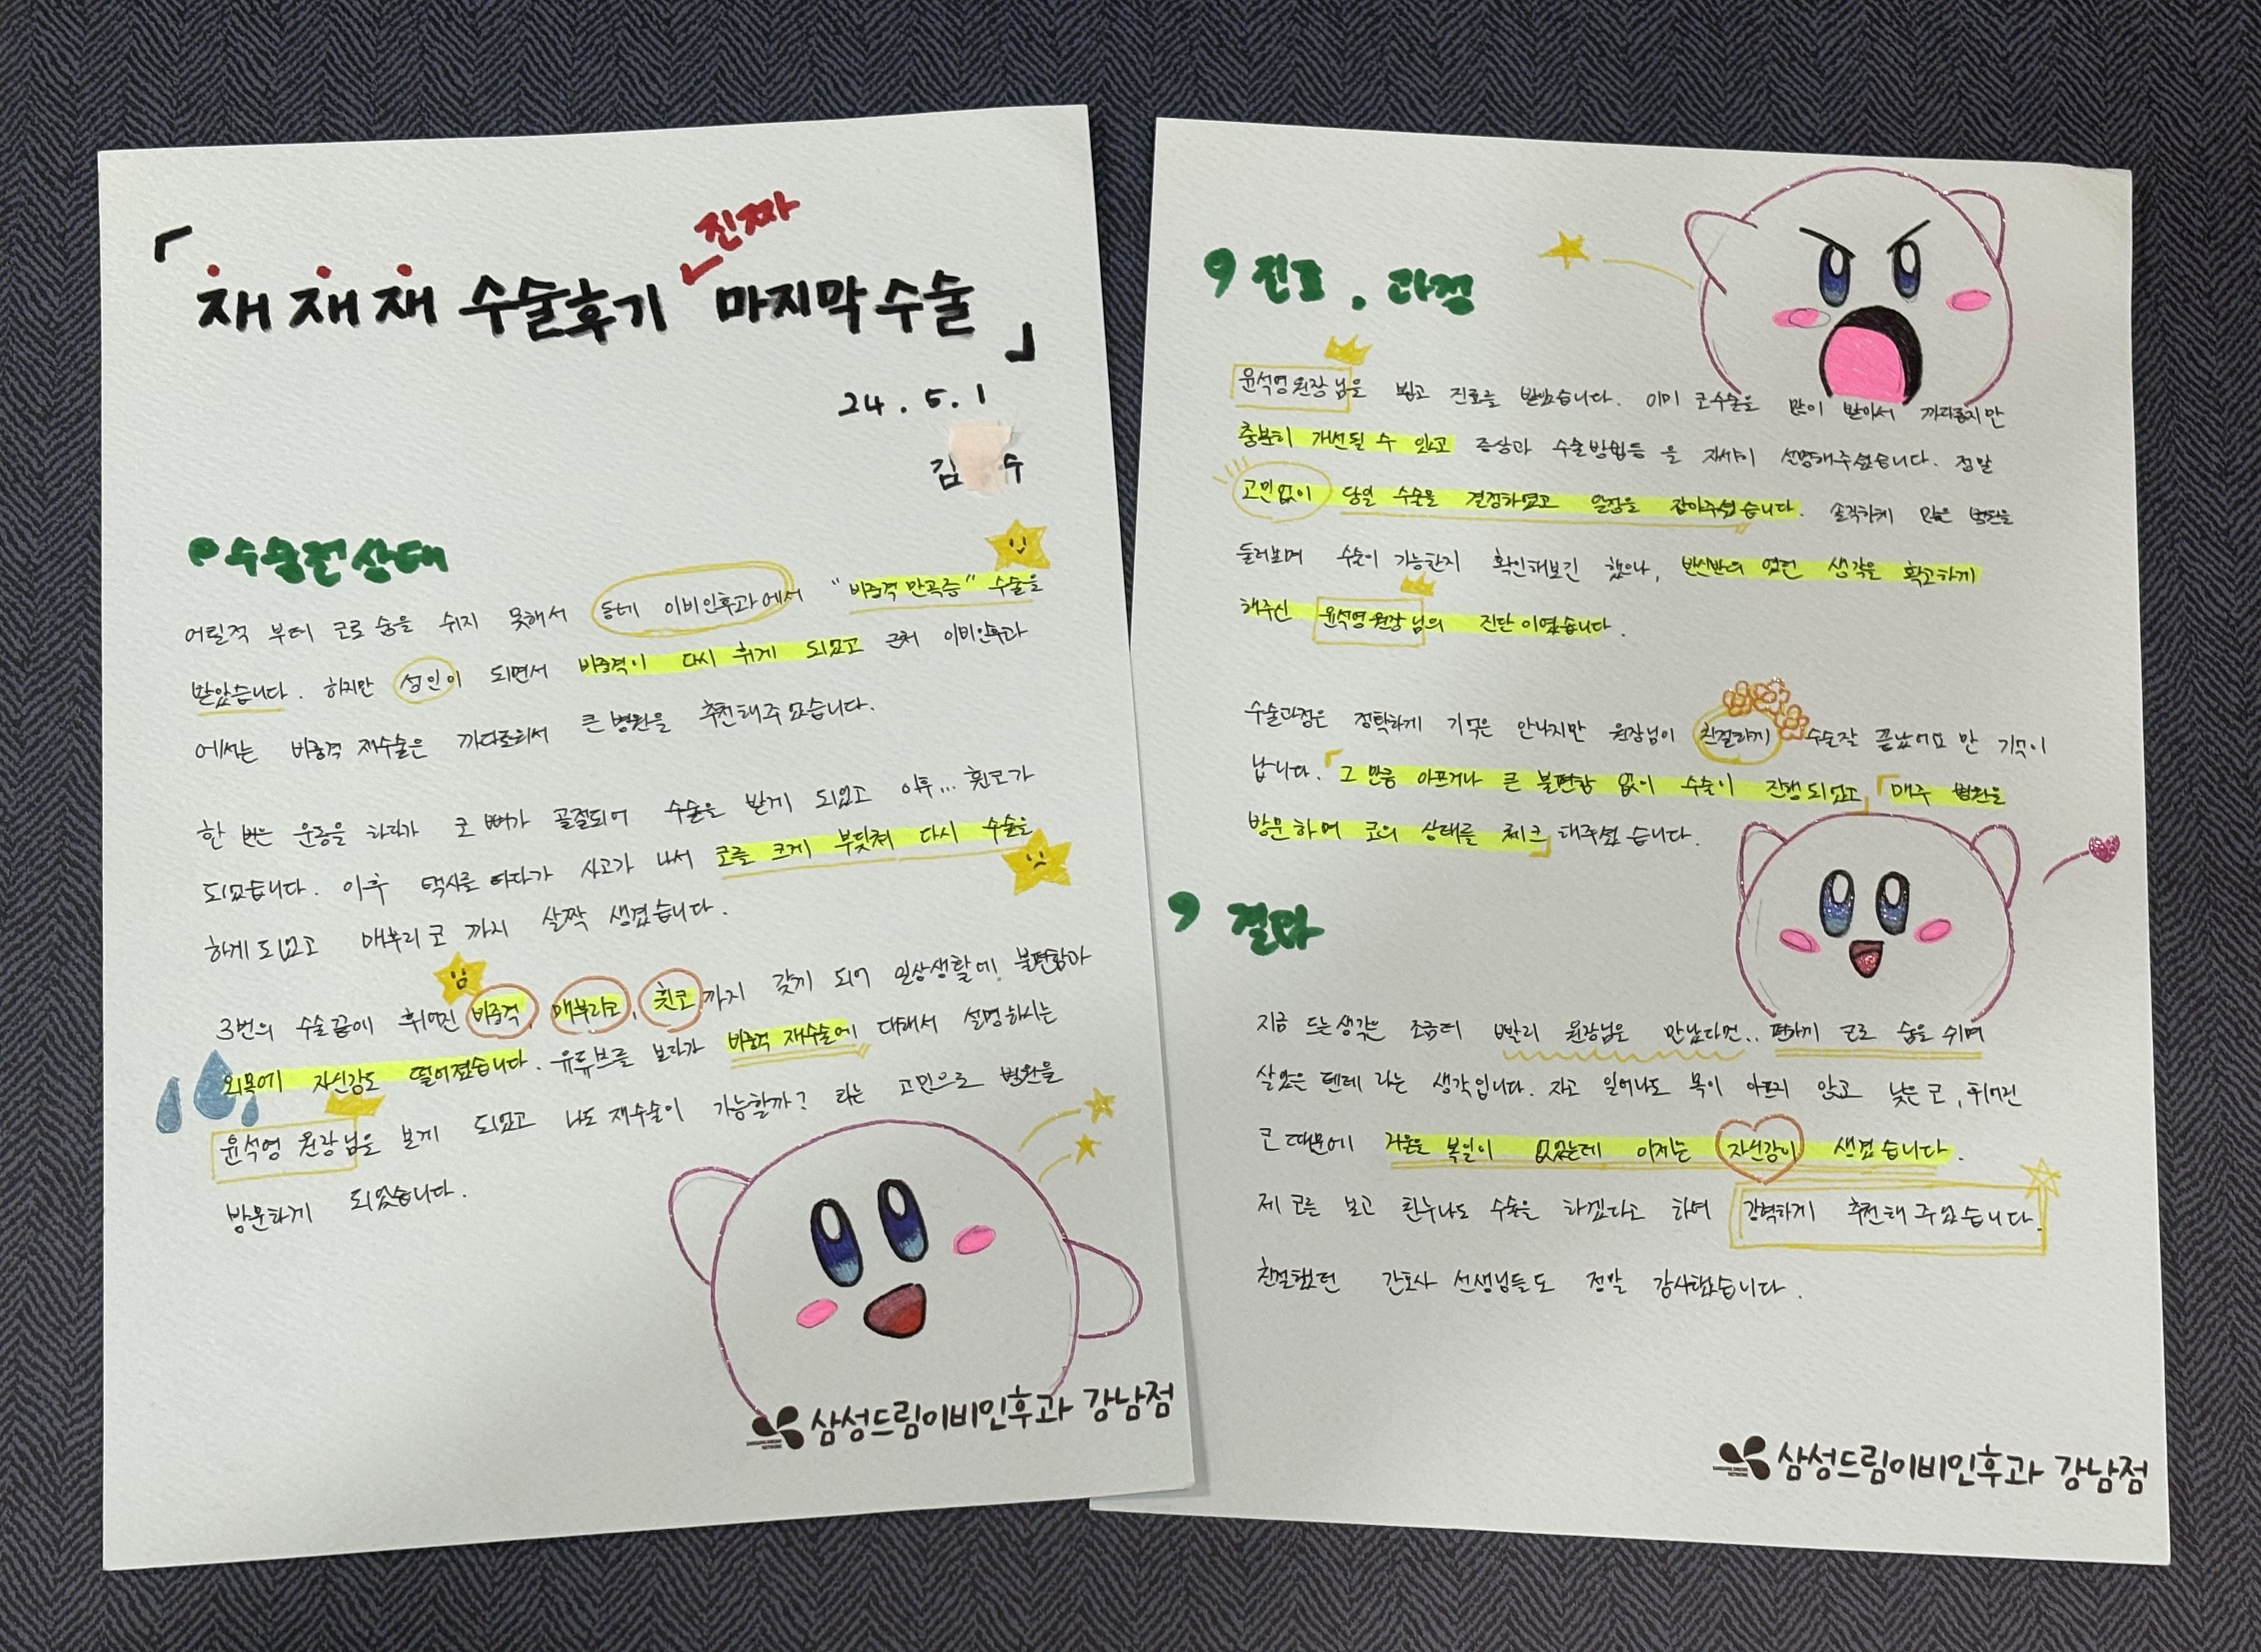 「재재재 수술후기 진짜 마지막 수술」
24. 5. 1
김 수
수술전상태
어릴적 부터 코로 숨을 쉬지 못해서 동네 이비인후과에서 "비중격 만곡증" 수술을
받았습니다. 하지만 성인이 되면서 비중격이 다시 휘게 되었고 근처 이비인후과
에서는 비중격 재수술은 까다로워서 큰 병원을 추천해주었습니다.
한 번은 운동을 하다가 코 뼈가 골절되어 수술을 받게 되었고 이후... 휜코가
되었습니다. 이후 택시를 타다가 사고가 나서 코를 크게 부딪쳐 다시 수술을
하게되었고 매부리코 까지 살짝 생겼습니다.
3번의 수술끝에 휘어진 비중격, 매부리코, 휜코까지 갖게 되어 일상생활에 불편함과
외모에 자신감도 떨어졌습니다. 유튜브를 보다가 비중격 재수술에 대해서 설명하시는
윤석영 원장님을 보게 되었고 나도 재수술이 가능할까? 라는 고민으로 병원을
방문하게 되었습니다.
삼성드림이비인후과 강남점
진료, 과정
윤석영원장님을 뵙고 진료를 받았습니다. 이미 코수술을 많이 받아서 까다롭지만
충분히 개선될 수 있고 증상과 수술방법등 을 자세히 설명해주셨습니다. 정말
고민없이 당일 수술을 결정하였고 일정을 잡아주셨습니다. 솔직하게 많은 병원을
둘러보며 수술이 가능한지 확인해보긴 했으나, 반신반의 였던 생각을 확고하게
해주신 윤석영원장님의 진단이였습니다.
수술과정은 정확하게 기억은 안나지만 원장님이 친절하게 수술잘 끝났어요 만 기억이
납니다. 「그 만큼 아프거나 큰 불편함 없이 수술이 진행되었고」 「매주 병원을
방문하여 코의 상태를 체크」 해주셨습니다.
결과
지금 드는생각은 조금더 빨리 원장님을 만났다면.. 편하게 코로 숨을 쉬며
살았을 텐데 라는 생각입니다. 자고 일어나도 목이 아프지 않고 낮은 코, 휘어진
코 때문에 거울을 볼일이 없었는데 이제는 자신감이 생겼습니다.
제 코를 보고 친누나도 수술을 하겠다고 하여 강력하게 추천해 주었습니다.
친절했던 간호사 선생님들도 정말 감사했습니다.
삼성드림이비인후과 강남점